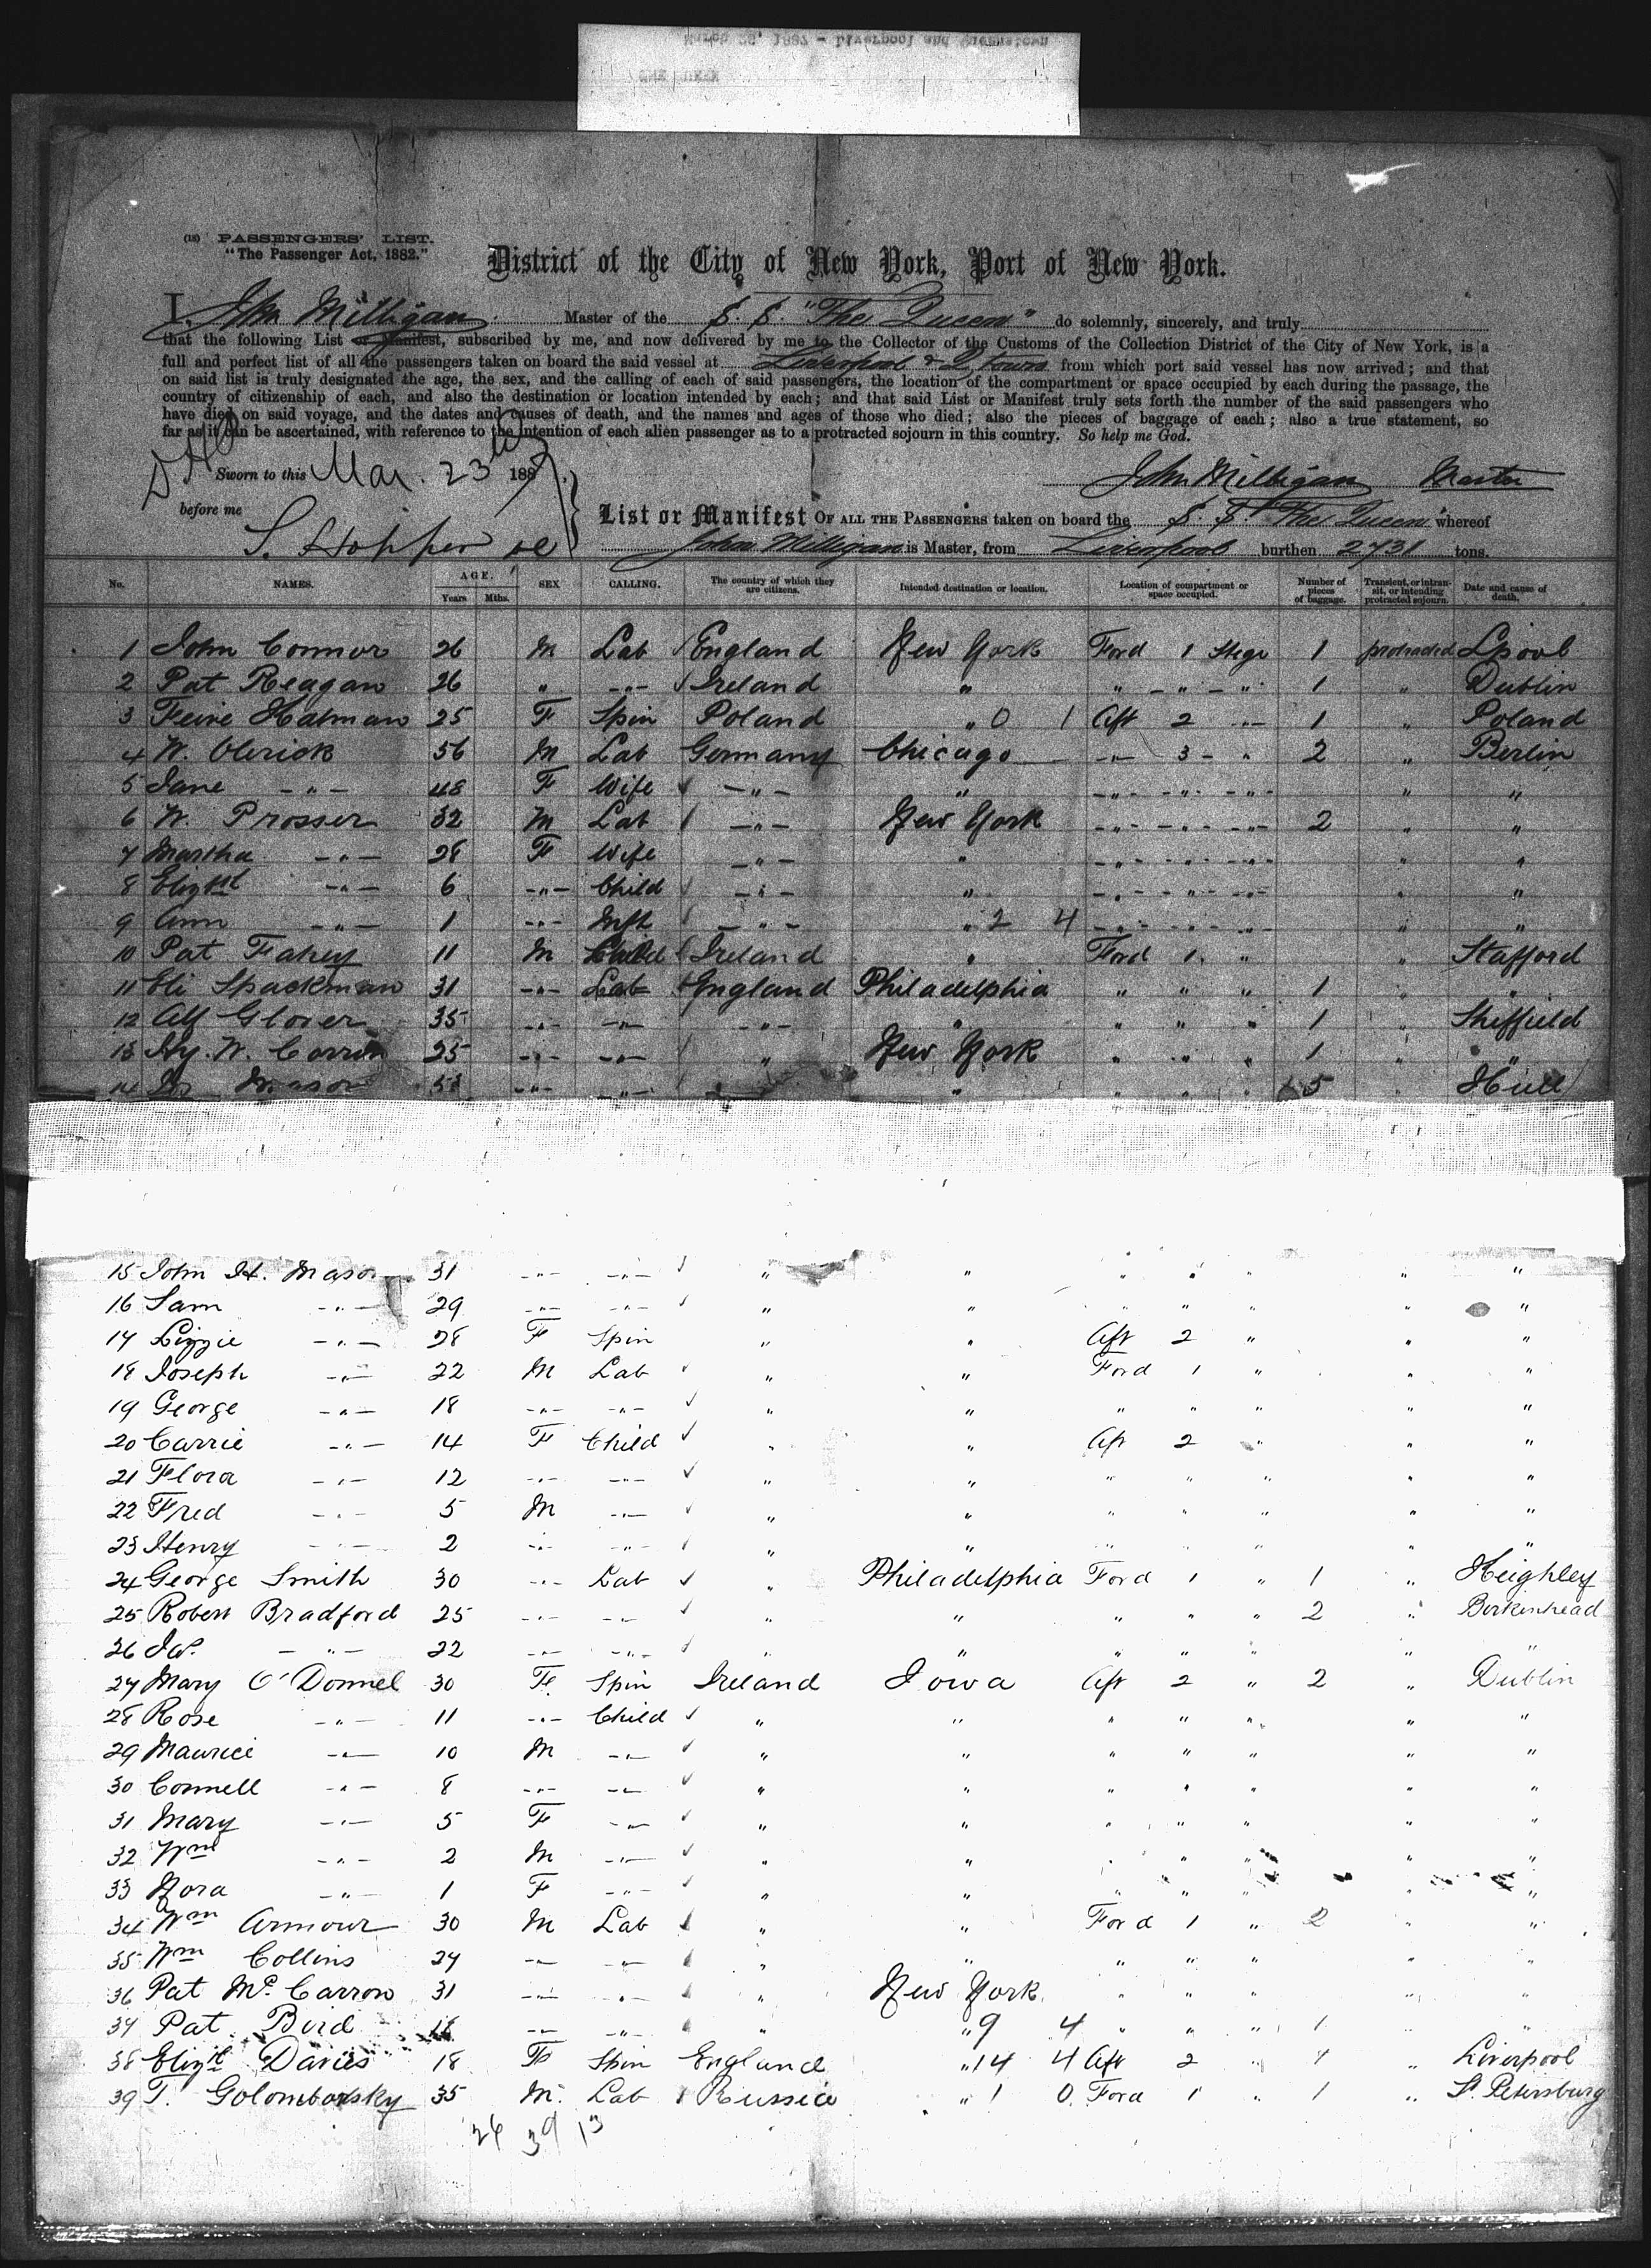 (18) PASSENGERS' LIST.
"The Passenger Act, 1882."
District of the City of New York, Port of New York.
I, John Milligan Master of the S. S. "The Queen" do solemnly, sincerely, and truly
that the following List or Manifest, subscribed by me, and now delivered by me to the Collector of the Customs of the Collection District of the City of New York, is a
full and perfect list of all the passengers taken on board the said vessel at Liverpool & Q, town from which port said vessel has now arrived; and that
on said list is truly designated the age, the sex, and the calling of each of said passengers, the location of the compartment or space occupied by each during the passage, the
country of citizenship of each, and also the destination or location intended by each; and that said List or Manifest truly sets forth the number of the said passengers who
have died on said voyage, and the dates and causes of death, and the names and ages of those who died; also the pieces of baggage of each; also a true statement, so
far as it can be ascertained, with reference to the intention of each alien passenger as to a protracted sojourn in this country. So help me God.
Sworn to this Mar. 23 1887
John Milligan Master
before me
S. Hopper
List or Manifest OF ALL THE PASSENGERS taken on board the S. S. "The Queen" whereof
John Milligan is Master, from Liverpool burthen 2731 tons.
No. NAMES. AGE. Years Mths. SEX CALLING. The country of which they are citizens. Intended destination or location. Location of compartment or space occupied. Number of pieces of baggage. Transient, or in transit, or intending protracted sojourn. Date and cause of death.
1 John Connor 26 M Lab England New York Ford 1 Stege 1 protracted Lpool
2 Pat Reagan 26 " -"- Ireland " " -"- " 1 " Dublin
3 Feive Hatman 25 F Spin Poland " 0 1 Aft 2 -"- 1 " Poland
4 W. Olerick 56 M Lab Germany Chicago -"- 3 - " 2 " Berlin
5 Jane -"- 48 F Wife -"- " -"- -"- -"- " "
6 W. Prosser 32 M Lab -"- New York -"- -"- -"- 2 " "
7 Martha -"- 28 F Wife -"- " -"- -"- -"- " "
8 Elizth -"- 6 -"- Child -"- " -"- -"- -"- " "
9 Ann -"- 1 -"- Inft -"- " 2 4 -"- -"- -"- " "
10 Pat Fahey 11 M Child Ireland " Ford 1 " " Stafford
11 Eli Spackman 31 -"- Lab England Philadelphia " " " 1 " "
12 Alf Glover 35 -"- -"- -"- " " " " 1 " Sheffield
13 Hy. W. Corrin 25 -"- -"- " New York " " " 1 " "
14 Mason -"- -"- " " " " 5 " Hull
15 John H. Mason 31 -"- -"- " " " " " " "
16 Sam -"- 29 -"- -"- " " " " " " "
17 Lizzie -"- 28 F Spin " " Aft 2 " " "
18 Joseph -"- 22 M Lab " " Ford 1 " " "
19 George -"- 18 -"- -"- " " " " " " "
20 Carrie -"- 14 F Child " " Aft 2 " " "
21 Flora -"- 12 -"- -"- " " " " " " "
22 Fred -"- 5 M -"- " " " " " " "
23 Henry -"- 2 -"- -"- " " " " " " "
24 George Smith 30 -"- Lab " Philadelphia Ford 1 " 1 " Keighley
25 Robert Bradford 25 -"- -"- " " " " " 2 " Birkenhead
26 Jas. -"- 22 -"- -"- " " " " " " "
27 Mary O'Donnel 30 F. Spin Ireland Iowa Aft 2 " 2 " Dublin
28 Rose -"- 11 -"- Child " " " " " " "
29 Maurice -"- 10 M -"- " " " " " " "
30 Connell -"- 8 -"- -"- " " " " " " "
31 Mary -"- 5 F -"- " " " " " " "
32 Wm -"- 2 M -"- " " " " " " "
33 Nora -"- 1 F -"- " " " " " " "
34 Wm Armour 30 M Lab " " Ford 1 " 2 " "
35 Wm Collins 24 -"- -"- " " " " " " "
36 Pat McCarron 31 -"- -"- " New York " " " " "
37 Pat Bird 18 -"- -"- " " 9 4 " " " 1 " "
38 Elizth Davies 18 F Spin England " 14 4 Aft 2 " 1 " Liverpool
39 T. Golomborsky 35 M. Lab Russia " 1 0 Ford 1 " 1 " St. Petersburg
26 39 13